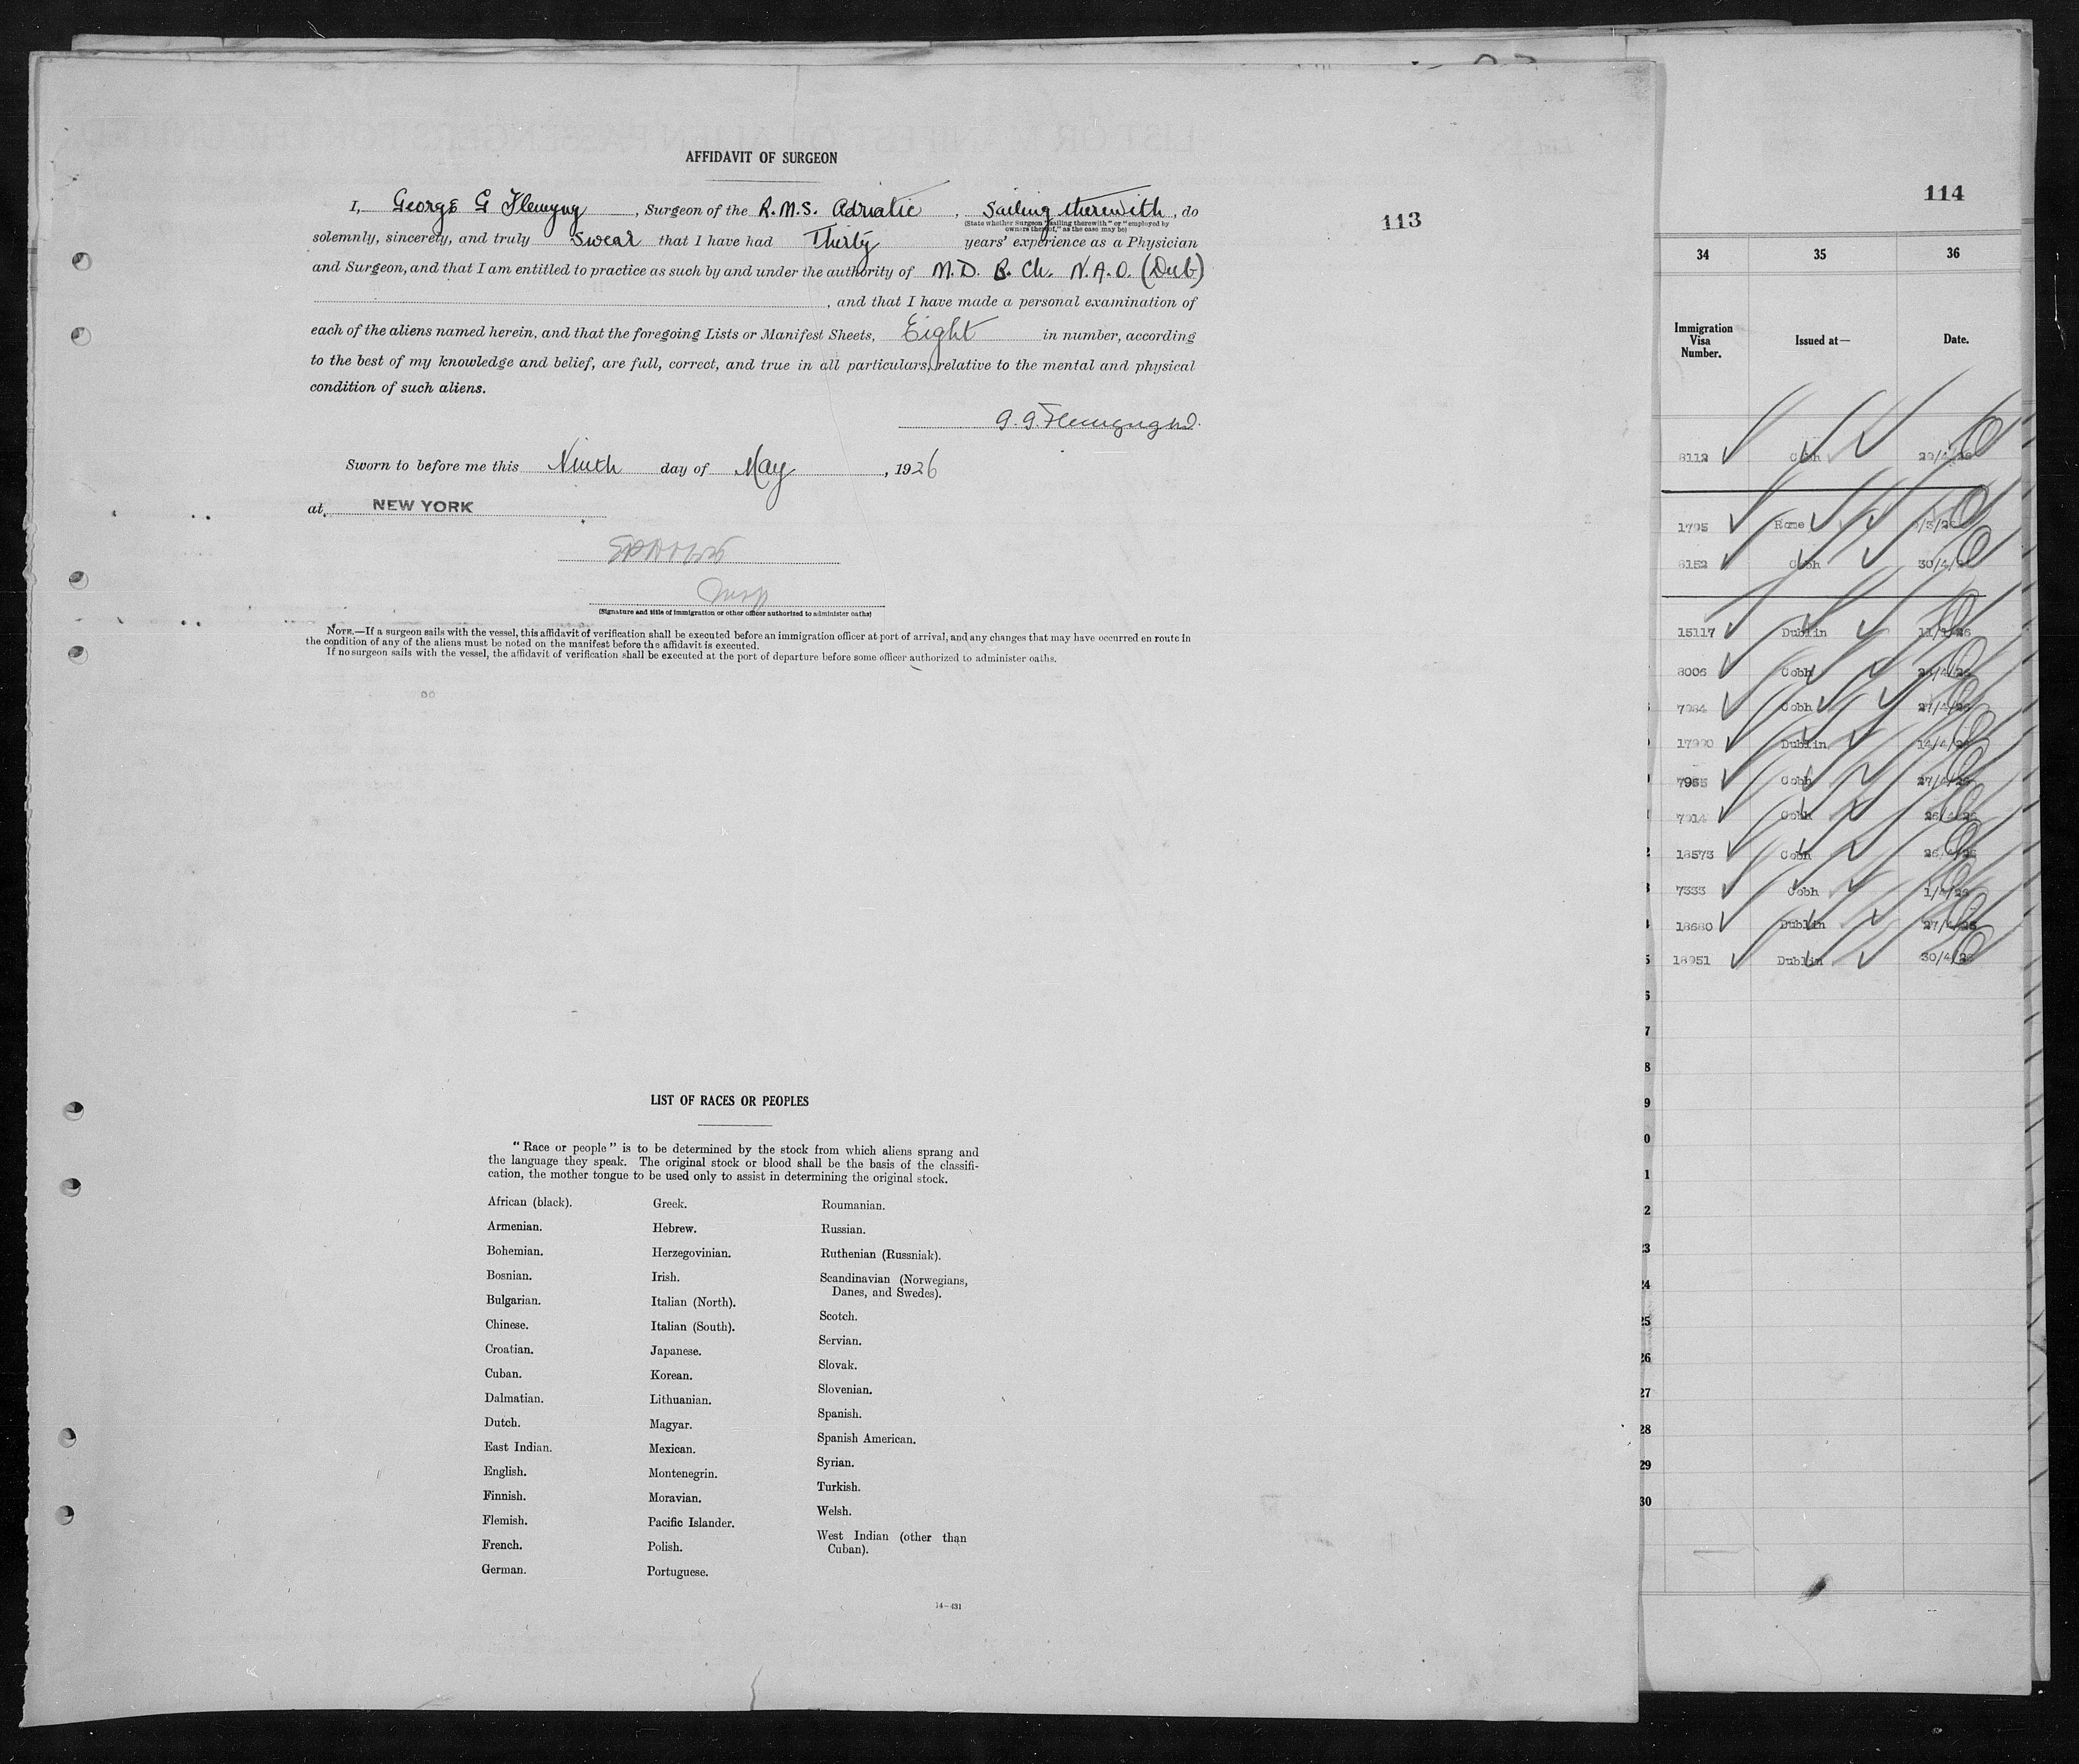 AFFIDAVIT OF SURGEON
I, George G Flemyng, Surgeon of the R.M.S. Adriatic, Sailing therewith, do
(State whether Surgeon "sailing therewith" or "employed by
owners thereof," as the case may be)
solemnly, sincerely, and truly swear that I have had Thirty years' experience as a Physician
and Surgeon, and that I am entitled to practice as such by and under the authority of M.D. B. Ch. N.A.O. (Dub)
, and that I have made a personal examination of
each of the aliens named herein, and that the foregoing Lists or Manifest Sheets, Eight in number, according
to the best of my knowledge and belief, are full, correct, and true in all particulars, relative to the mental and physical
condition of such aliens.
G. G. Flemyng M.D.
Sworn to before me this Ninth day of May, 1926
at NEW YORK
Insp
(Signature and title of immigration or other officer authorized to administer oaths)
NOTE.—If a surgeon sails with the vessel, this affidavit of verification shall be executed before an immigration officer at port of arrival, and any changes that may have occurred en route in
the condition of any of the aliens must be noted on the manifest before the affidavit is executed.
If no surgeon sails with the vessel, the affidavit of verification shall be executed at the port of departure before some officer authorized to administer oaths.
113
LIST OF RACES OR PEOPLES
"Race or people" is to be determined by the stock from which aliens sprang and
the language they speak. The original stock or blood shall be the basis of the classifi-
cation, the mother tongue to be used only to assist in determining the original stock.
African (black).
Armenian.
Bohemian.
Bosnian.
Bulgarian.
Chinese.
Croatian.
Cuban.
Dalmatian.
Dutch.
East Indian.
English.
Finnish.
Flemish.
French.
German.
Greek.
Hebrew.
Herzegovinian.
Irish.
Italian (North).
Italian (South).
Japanese.
Korean.
Lithuanian.
Magyar.
Mexican.
Montenegrin.
Moravian.
Pacific Islander.
Polish.
Portuguese.
Roumanian.
Russian.
Ruthenian (Russniak).
Scandinavian (Norwegians,
Danes, and Swedes).
Scotch.
Servian.
Slovak.
Slovenian.
Spanish.
Spanish American.
Syrian.
Turkish.
Welsh.
West Indian (other than
Cuban).
14—431
114
34 35 36
Immigration
Visa
Number.
Issued at—
Date.
8112 Cobh 29/4/26
1795 Rome
6152 Cobh 30/4/26
15117 Dublin
8006 Cobh
Cobh 27/4/26
Dublin 14/4/26
Cobh 27/4/26
7914 Cobh 26/4/26
18573 Cobh 26/4/26
7333 Cobh
18680 Dublin 27/4/26
18951 Dublin 30/4/26
6
7
8
9
0
1
2
23
24
25
26
27
28
29
30